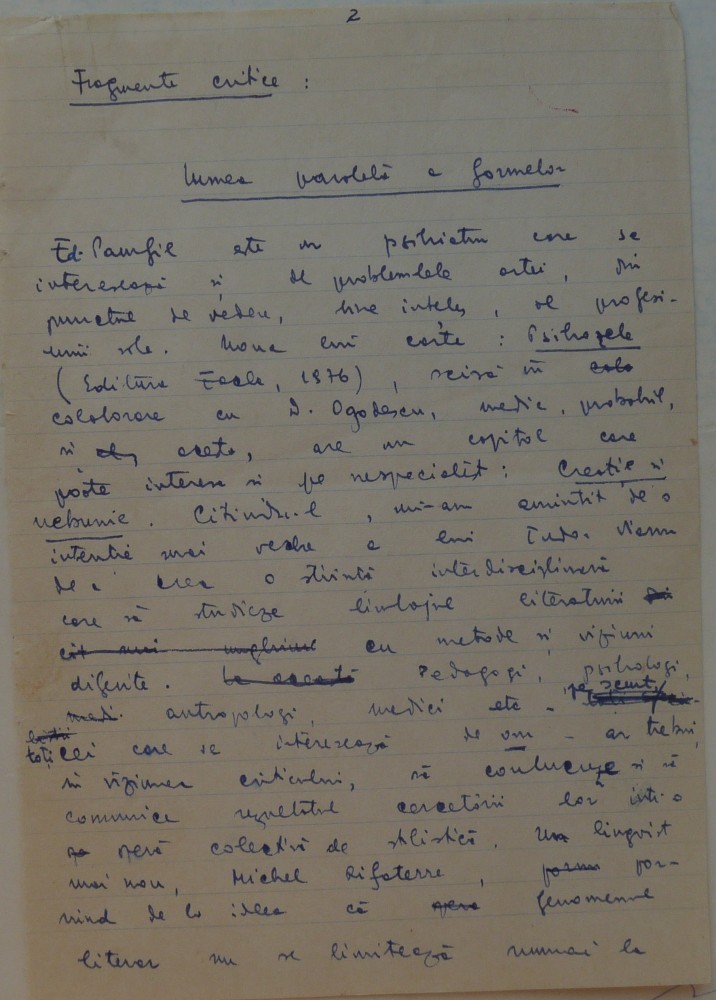 2
Fragmente critice :
Lumea paralelă a formelor
Ed. Pamfil este un psihiatru care se
interesează și de problemele artei, din
punctul de vedere, bine înțeles, al profesi-
unii sale. Noua lui carte : Psihozele
(Editura Facla, 1976), scisă în colo
colaborare cu D. Ogodescu, medic, probabil,
și acesta, are un capitol care
poate interesa și pe nespecialist : Creație și
nebunie. Citindu-l, mi-am amintit de o
intenție mai veche a lui Tudor Vianu
de a crea o știință interdisciplinară
care să studieze limbajul literaturii din
cît mai unghiuri cu metode și viziuni
diferite. La acestă Pedagogi, psihologi,
medi. antropologi, medici etc - pe scurt,
toți cei care se interesează de om - ar trebui,
în viziunea criticului, să conlucreze și să
comunice rezultatul cercetării lor într-o
operă colectivă de stilistică. Un lingvist
mai nou, Michel Rifaterre, pornu por-
nind de la ideea că fenomenul
literar nu se limitează numai la